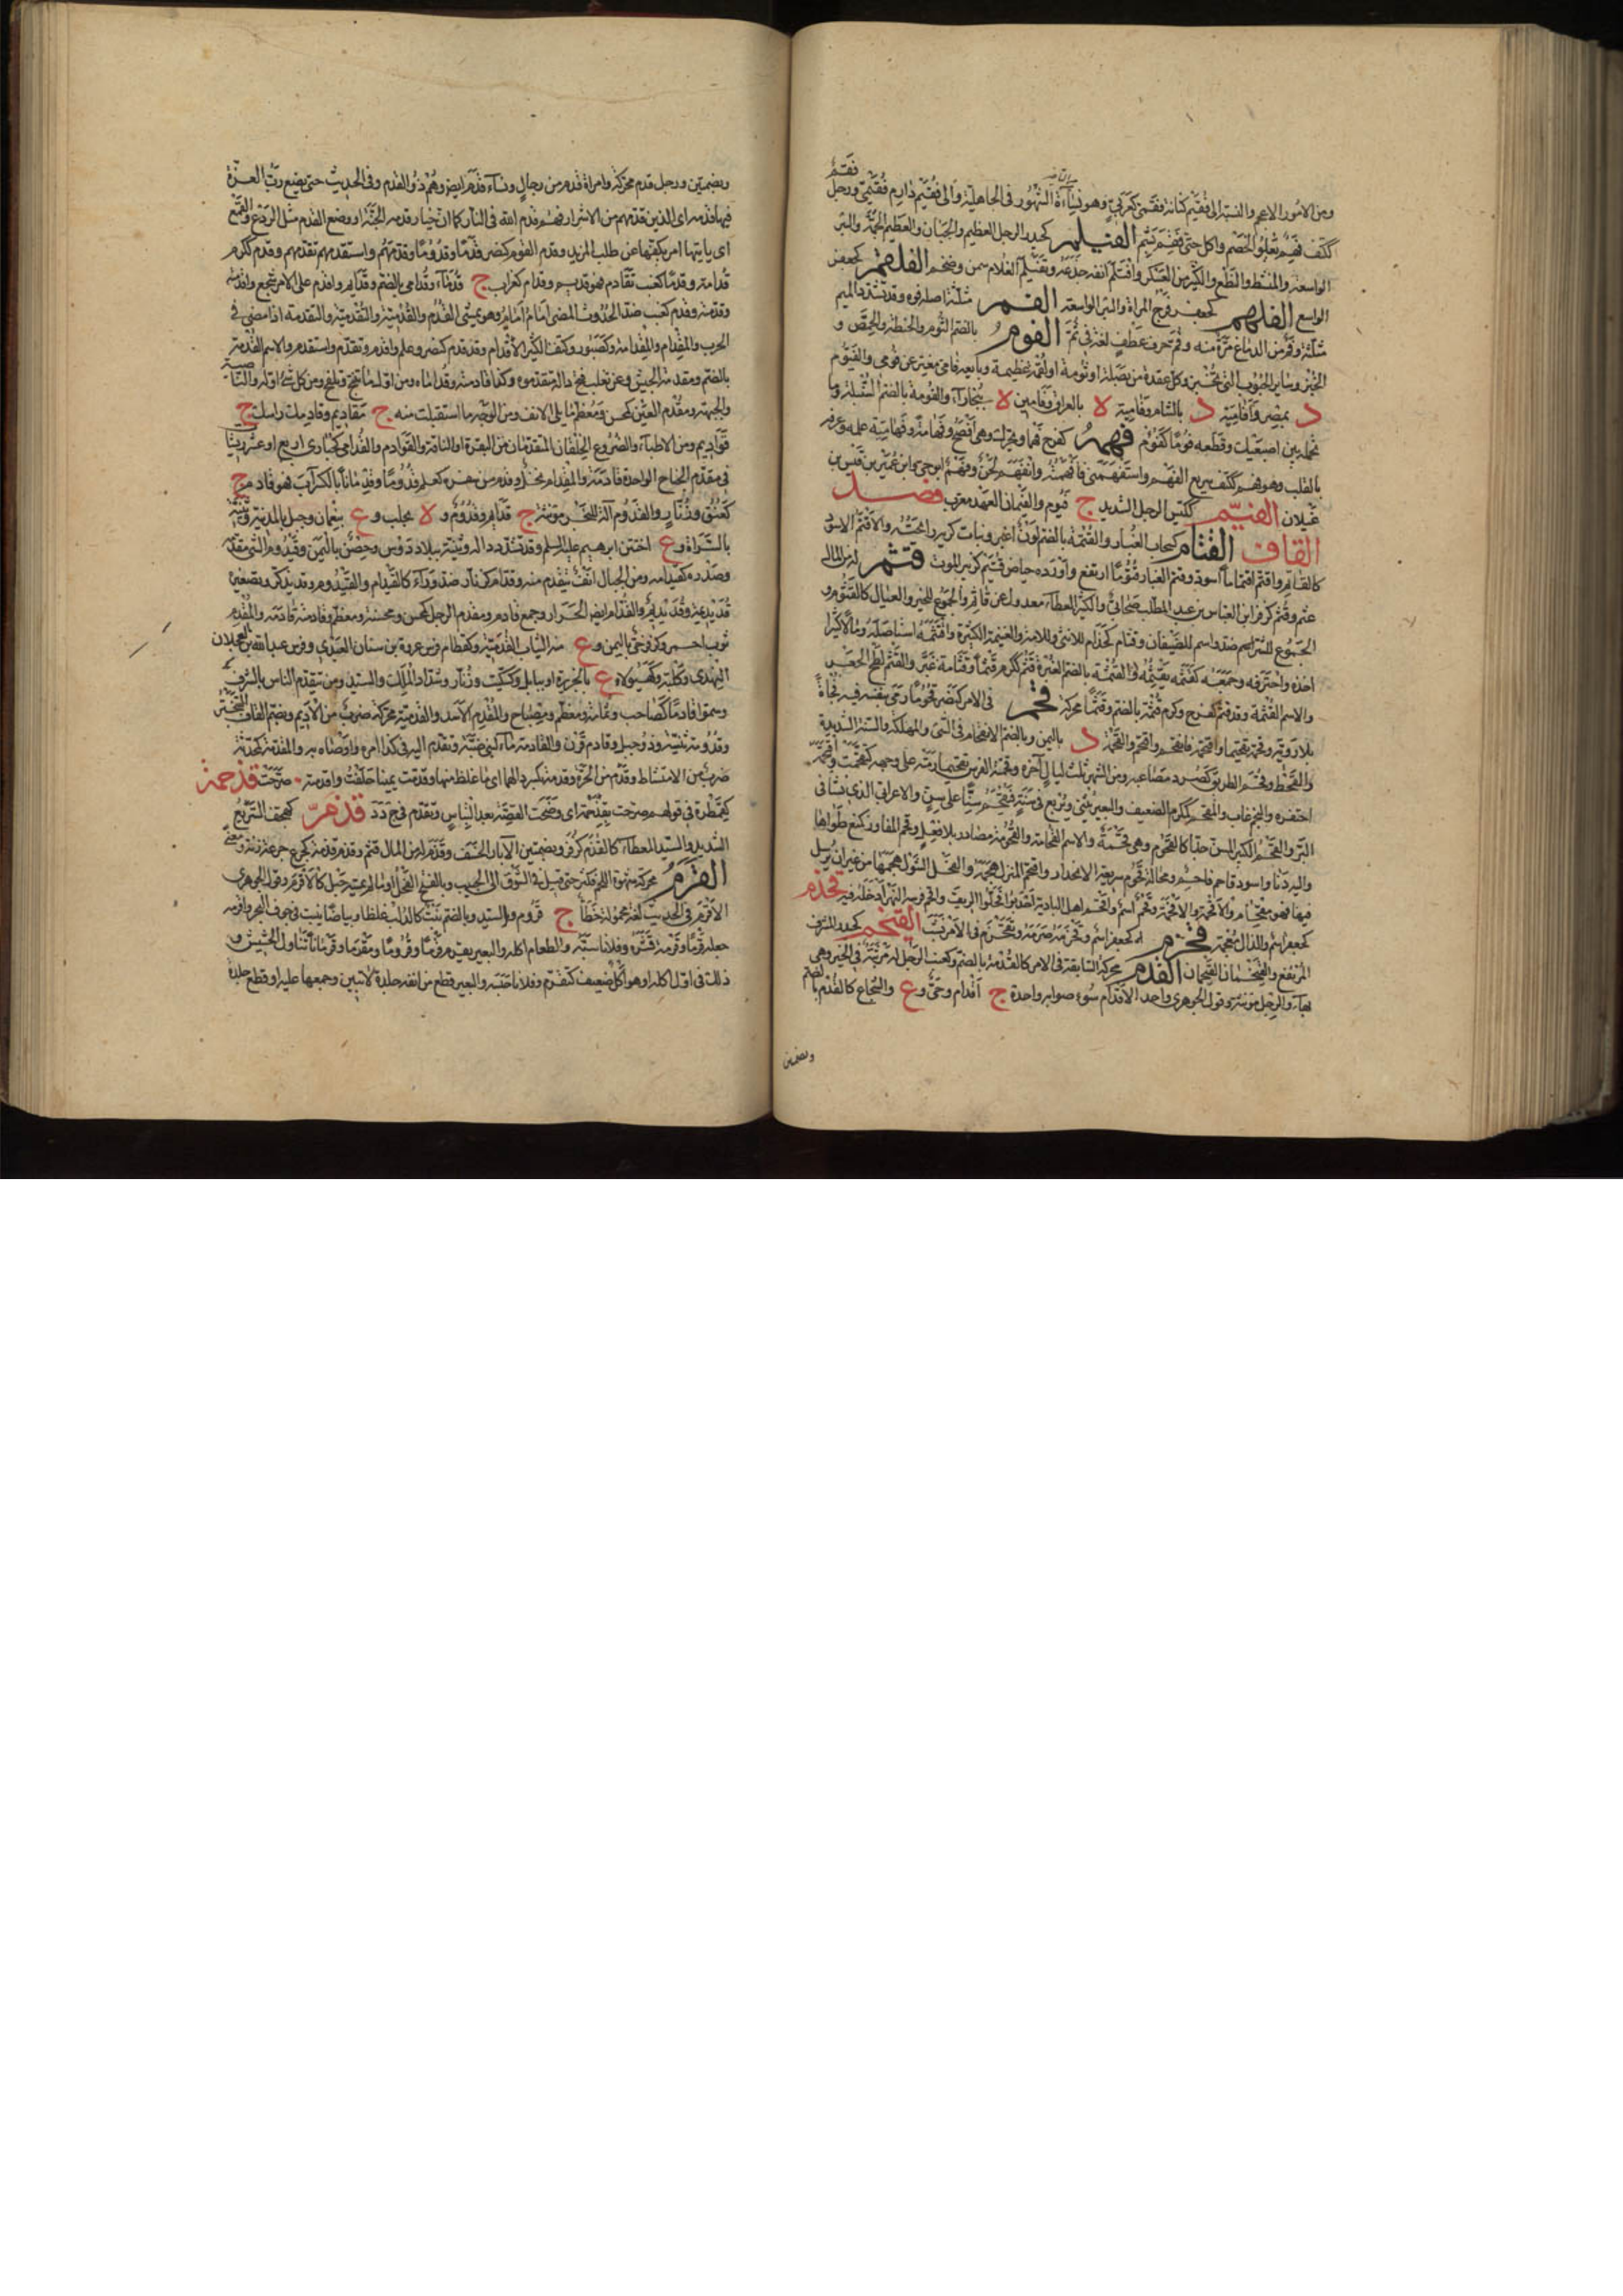 ومن الامور الاعم والنسبة الى فقيم كنانة فقمي كعربي وهم نسأة الشهور في الجاهلية والى فقيم دارم فقيمي ورجل فقم
ككتف فهم يعلو الخصم واكل حتى فقم بشم الفيلم كحيدر الرجل العظيم والجبان والعظيم الجمة والبئر
الواسعة والمشط والنطع والكثير من العسكر وافتلم انفه جدعه وتفيلم الغلام سمن وضخم الفلقم كجعفر
الواسع الفلهم كجعفر فرج المراة والبئر الواسعة الفم مثلثة اصله فوه وقد تشدد الميم
مثلثة وفم من الدباغ مرة منه وفم حرف عطف لغة في ثم الفوم بالضم الثوم والحنطة والحمص و
الخبز وسائر الحبوب التي تختبز وكل عقدة من بصلة او ثومة او لقمة عظيمة وبائعه فامي مغير عن فومي والفيوم
د بمصر وافامية د بالشام وفامية لا بالعراق وفامين لا ببخارآء والفومة بالضم السنبلة وما
تحمله بين اصبعيك وقطعه فوما كفوم فهمه كفرح فهما ويحرك وهي افصح وفهامة وفهامية علمه وعرفه
بالقلب وهو فهم ككتف سريع الفهم واستفهمني فافهمته وانفهم لحن وفهم ابو حي وابن عمرو بن قيس بن
غيلان الفيم ككيس الرجل الشديد ج فيوم والفيمان العهد معرب فصل
القاف القتام كسحاب الغبار والقتمة بالضم لون اغبر ونبات كريه رائحته والاقتم الاسود
كالقاتم واقتم اقتماما اسود وقتم الغبار قتوما ارتفع واورده حياض قتيم كزبير الموت قثم له من المال
غثم وقثم كزفر ابن العباس بن عبد المطلب صحابي والكثير العطآء معدول عن قاثم والجموع للخير والعيال كالقثوم و
الجموع للشر اسم ضد واسم للضبعان وقثام كحذام للانثى وللامة والغنيمة الكثيرة واقتثمه استاصله ومالا كثيرا
اخذه واجترفه وجمعه كقثمه يقثمه والقثمة بالضم الغبرة قثم ككرم قثما وقثامة غبر والقثم لطخ الجعر
والاسم القثمة وقد قثم كفرح وكرم قثمة بالضم وقثما محركة قحم في الامر كنصر قحوما رمى بنفسه فيه فجأة
بلا روية وقحمه تقحيما واقحمته فانقحم واقتحم والقحمة د باليمن وبالضم الاقتحام في الشئ والمهلكة والسنة الشديدة
والقحط وقحم الطريق كصرد مصاعبه ومن الشهر ثلث ليال آخره وقحمته الفرس تقحيما رمته على وجهه كتقحمت واقتحمه
احتقره والنجم غاب والمقحم كمكرم الضعيف والبعير يثني ويربع في سنة فيقتحم سنا على سن والاعرابي الذي نشأ في
البر والقحم الكبير السن جدا كالقحوم وهي قحمة والاسم القحامة والقحومة مصادر بلا فعل وقحم المفاوز كمنع طواها
واليه دنا واسود قاحم فاحم ومحالة قحوم سريعة الانحدار واقتحم المنزل هجمه والفحل الشول هجمها من غير ان يرسل
فيها فهو مقحام والاقحمة والاقحمة وقحم اسم واقحم اهل البادية اجدبوا فحلوا الريف واقحم فرسه النهر ادخله فيه قحذم
كجعفر اسم والذال معجمة قحزم كجعفر اسم وقحزمه صرمه وتقحزم في الامر تسبب القيخم كحيدر المشرف
المرتفع والقيخمان القيخمان القدم محركة السابقة في الامر كالقدمة بالضم وكعنب الرجل له مرتبة في الخير وهي
بهآء والرجل مؤنثة وقول الجوهري واحد الاقدام سهو صوابه واحدة ج اقدام وحي وع والشجاع كالقدم بالضم
وبضمتين
وبضمتين ورجل قدم محركة وامراة قدم من رجال ونسآء قدم ايضا وهم ذوو القدم وفي الحديث حتى يضع رب العزة
فيها قدمه اي الذين قدمهم من الاشرار فهم قدم الله في النار كما ان خيار قدمه الجنة او وضع القدم مثل الردع والقمع
اي ياتيها امر يكفيها عن طلب المزيد وقدم القوم كنصر قدما وقدوما وقدمهم واستقدمهم تقدمهم وقدم ككرم
قدامة وقدما كعنب تقادم فهو قديم وقدام كغراب ج قدمآء وقدامى بالضم وقدايم واقدم على الامر شجع واقدمته
وقدمته وقدم كعنب ضد الحدوث المضي امام امام وهو يمشي القدم والقدمية والتقدمية والتقدمة اذا مضى في
الحرب والمقدام والمقدامة وكصبور وكتف الكثير الاقدام وقد قدم كنصر وعلم واقدم وتقدم واستقدم والاسم القدمة
بالضم ومقدمة الجيش وعن ثعلب فتح داله متقدموه وكذا قادمته وقداماه ومن الابل اول ما تنتج وتلقح ومن كل شئ اوله والناصية
والجبهة ومقدم العين كمحسن ومعظم ما يلي الانف ومن الوجه ما استقبلت منه ج مقاديم وقادمك راسك ج
قواديم ومن الاطبآء والضروع الخلفان المتقدمان من البقرة او الناقة والقوادم والقدامى كحبارى اربع او عشر ريشات
في مقدم الجناح الواحدة قادمة والمقدام نخل وقدم من سفره كعلم قدوما وقدمانا بالكسر آب فهو قادم ج
كعنق وزنار والقدوم آلة للنحر مؤنثة ج قدايم وقدم و لا بحلب وع بنعمان وجبل بالمدينة وثنية
بالسراة وع اختتن ابرهيم عليه السلم وقد تشدد داله وثنية ببلاد دوس وحصن باليمن وقيدوم الشئ مقدمه
وصدره كقيدامه ومن الجبال انف يتقدم منه وقدام كزنار ضد ورآء كالقيدام والقيدوم وقد يذكر وتصغيره
قديديمة وقديديم والقدام ايضا الجزار وجمع قادم ومقدم الرجل كمحسن ومحسنة ومعظم وقادمته قادمه والمقدم
ثوب احمر وكزفر حي باليمن وع منه الثياب القدمية وكقطام فرس عروة بن سنان العبدي وفرس عبد الله بن العجلان
النهدي وكلبة وكهيولاء ع بالجزيرة او ببابل وكسكيت وزنار وشداد الملك والسيد ومن يتقدم الناس بالشرف
وسموا قادما كصاحب وثمامة ومعظم ومصباح والمقدم الاسد والقدمية محركة ضرب من الادم وبضم القاف التبختر
وقدومة ثنية وذو جبل وقادم قرن والقادمة مآء لبني ضبة وتقدم اليه في كذا امره واوصاه به والمقدمة كمحدثة
ضرب من الامتشاط وقدم من الحرة وقدمة بكسر دالهما اي ما غلظ منها وقدمت يمينا حلفت واقدمته صرحت قذحمة
كقمطرة في قولهم صرحت بقذحمة اي وضحت القصة بعد التباس وتقدم في ج د د قذهر كهجف السريع
الشديد والسيد المعطآء كالقذم كزفر وبضمتين الآبار الخسف وقذم له من المال قثم وقذم قذمة كجرع جرعة زنة ومعنى
القرم محركة شدة شهوة اللحم وكثر حتى قيل في الشوق الى الحبيب وبالفتح الفحل او ما لم يمسه حبل كالاقرم وقول الجوهري
الاقرم في الحديث لغة مجهولة خطأ ج قروم والسيد وبالضم نبت كالدلب غلظا وبياضا ينبت في جوف البحر واقرمه
جعله قرما وقرمه قشره وفلانا سبه والطعام اكله والبعير يقرم قرما وقروما ومقرما وقرمانا تناول الحشيش و
ذلك في اول اكله او هو اكل ضعيف كتقرم وفلانا حبسه والبعير قطع من انفه جلدة لا تبين وجمعها عليه او قطع جلدة